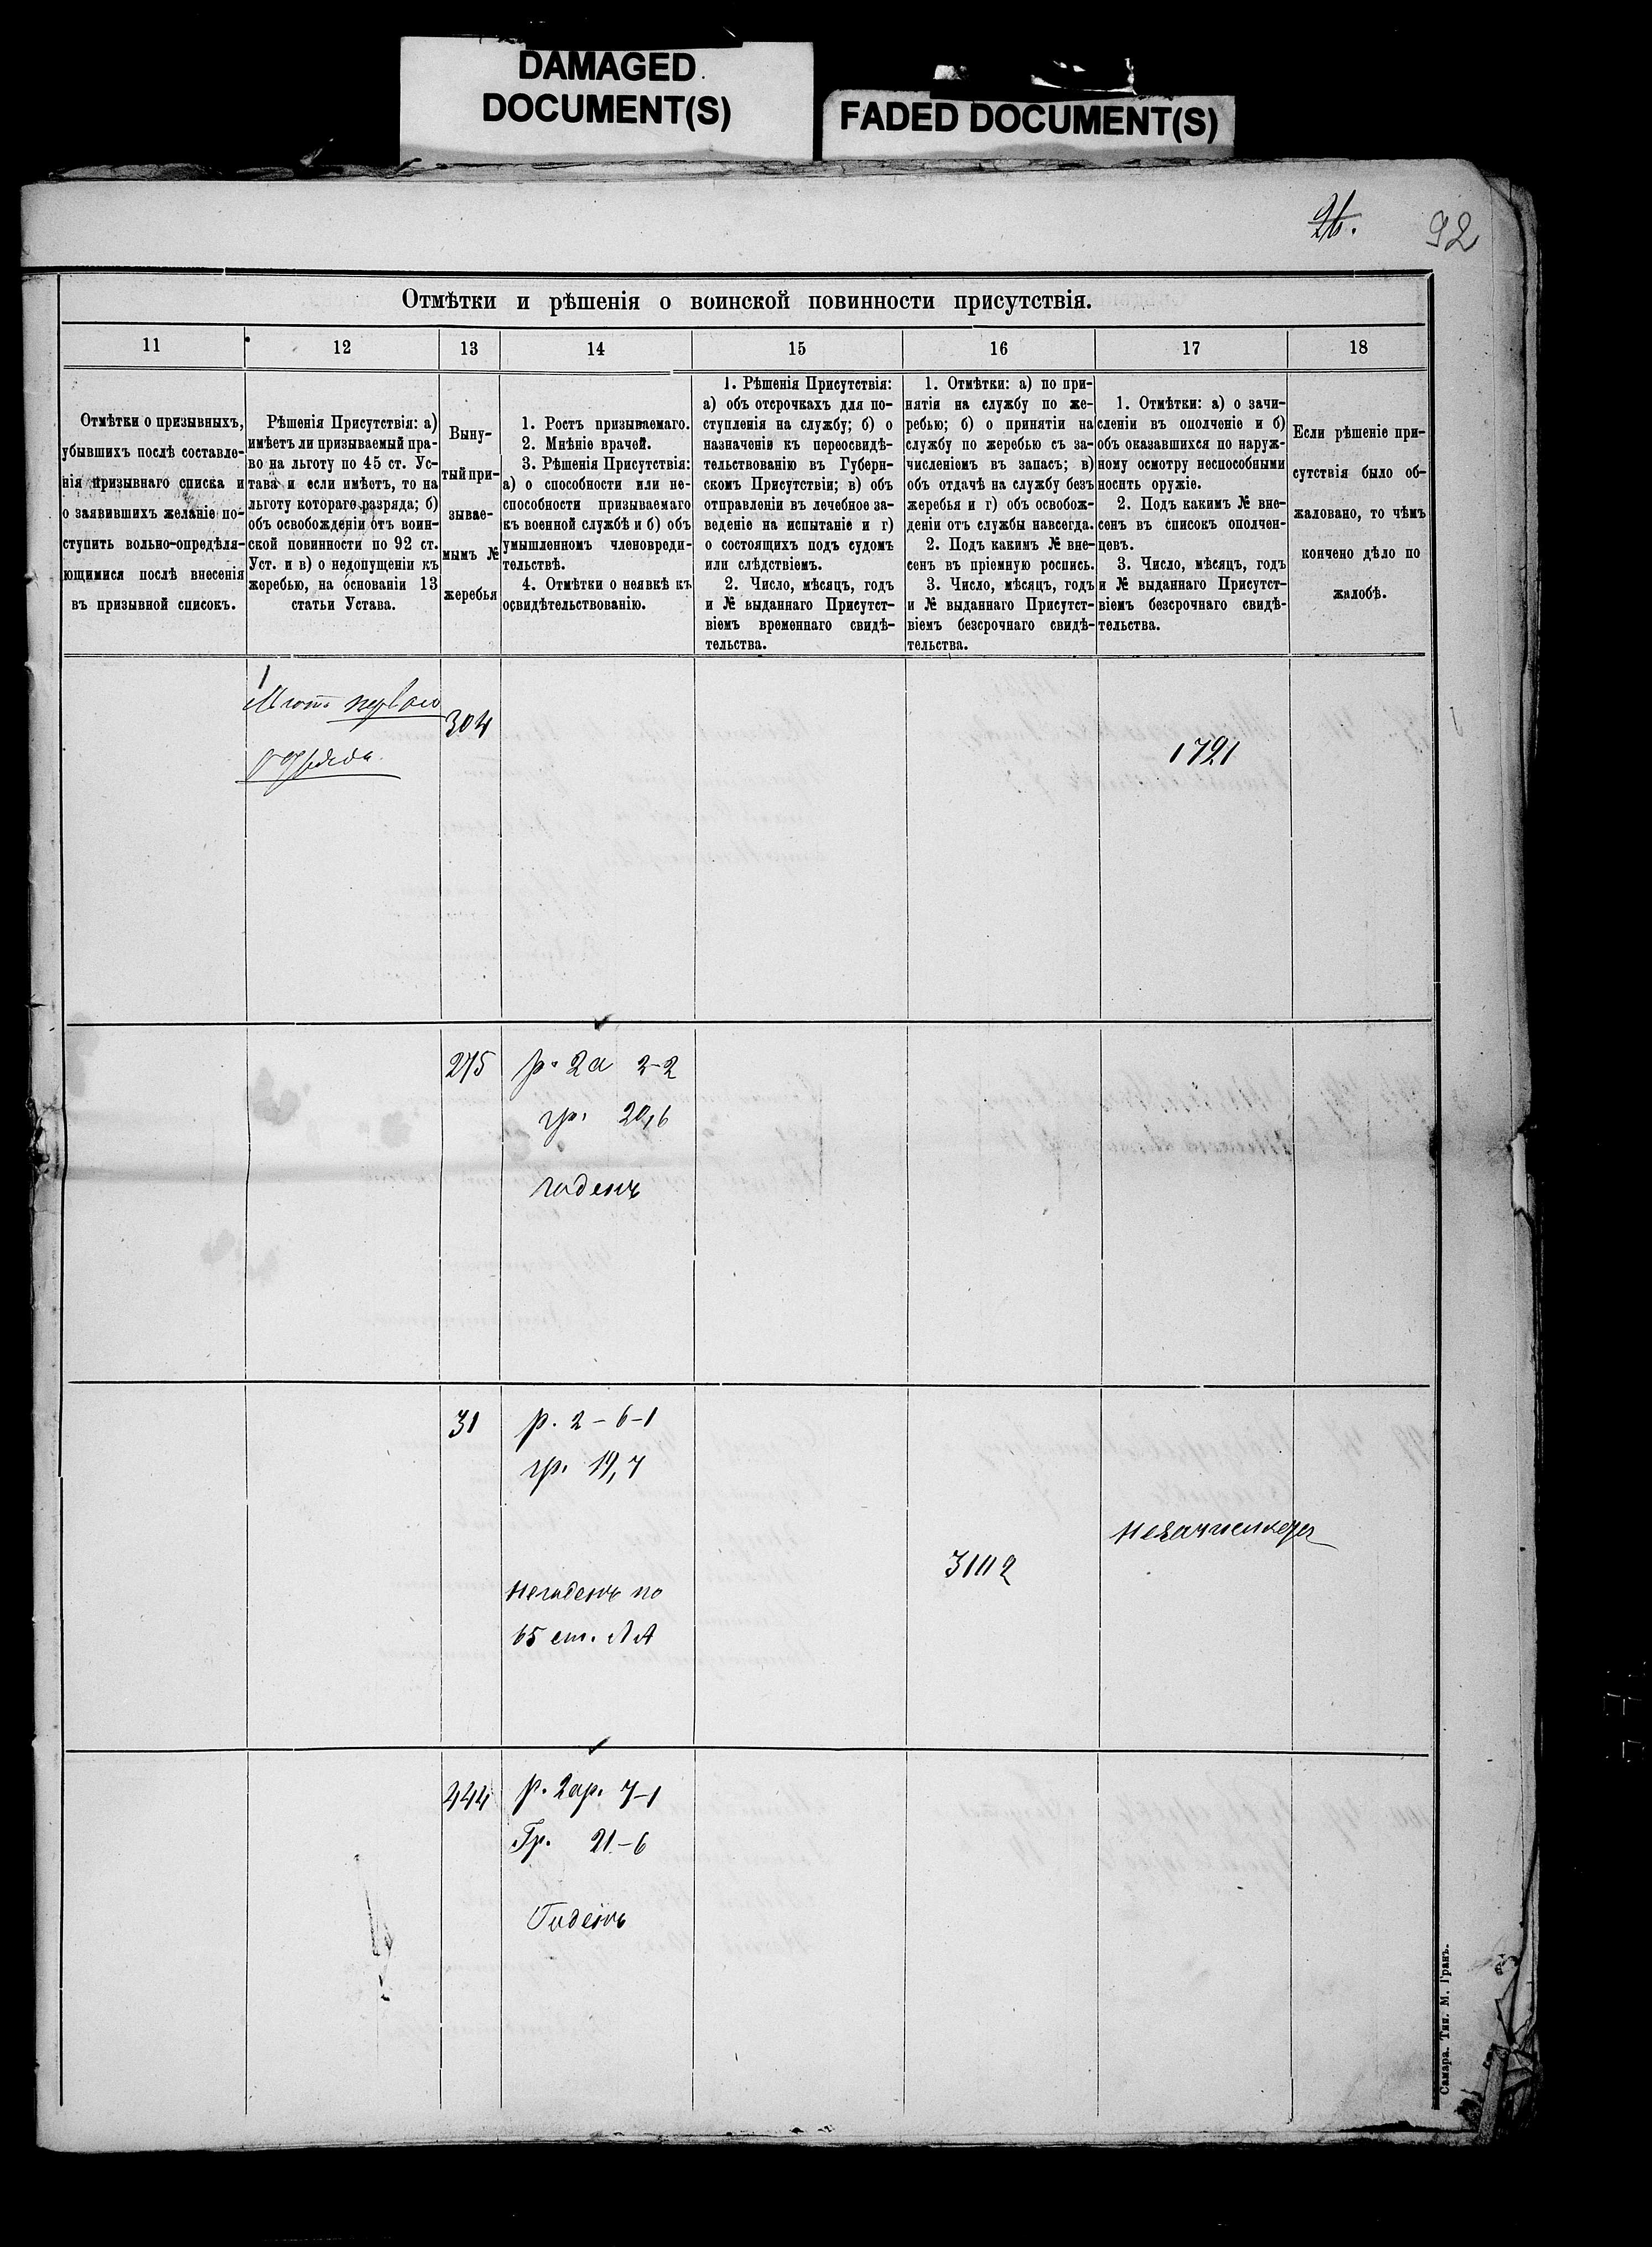 DAMAGED
DOCUMENT(S)
FADED DOCUMENT(S)
26.
92
Отмѣтки и рѣшенія о воинской повинности присутствія.
11
12
13
14
15
16
17
18
Отмѣтки о призывныхъ,
убывшихъ послѣ составле-
нія призывнаго списка и
о заявившихъ желаніе по-
ступить вольно-опредѣля-
ющимися послѣ внесенія
въ призывной списокъ.
Рѣшенія Присутствія: а)
имѣетъ ли призываемый пра-
во на льготу по 45 ст. Ус-
тава и если имѣетъ, то на
льготу котораго разряда; б)
объ освобожденіи отъ воин-
ской повинности по 92 ст.
Уст. и в) о недопущеніи къ
жеребью, на основаніи 13
статьи Устава.
Выну-
тый при-
зывае-
мымъ №
жеребья
1. Ростъ призываемаго.
2. Мнѣніе врачей.
3. Рѣшенія Присутствія:
а) о способности или не-
способности призываемаго
къ военной службѣ и б) объ
умышленномъ членовреди-
тельствѣ.
4. Отмѣтки о неявкѣ къ
освидѣтельствованію.
1. Рѣшенія Присутствія:
а) объ отсрочкахъ для по-
ступленія на службу; б) о
назначеніи къ переосвидѣ-
тельствованію въ Губерн-
скомъ Присутствіи; в) объ
отправленіи въ лечебное за-
веденіе на испытаніе и г)
о состоящихъ подъ судомъ
или слѣдствіемъ.
2. Число, мѣсяцъ, годъ
и № выданнаго Присутст-
віемъ временнаго свидѣ-
тельства.
1. Отмѣтки: а) по при-
нятіи на службу по же-
ребью; б) о принятіи на
службу по жеребью съ за-
численіемъ въ запасъ; в)
объ отдачѣ на службу безъ
жеребья и г) объ освобож-
деніи отъ службы навсегда.
2. Подъ какимъ № вне-
сенъ въ пріемную роспись.
3. Число, мѣсяцъ, годъ
и № выданнаго Присутст-
віемъ безсрочнаго свидѣ-
тельства.
1. Отмѣтки: а) о зачи-
сленіи въ ополченіе и б)
объ оказавшихся по наруж-
ному осмотру неспособными
носить оружіе.
2. Подъ какимъ № вне-
сенъ въ списокъ ополчен-
цевъ.
3. Число, мѣсяцъ, годъ
и № выданнаго Присутст-
віемъ безсрочнаго свидѣ-
тельства.
Если рѣшеніе при-
сутствія было об-
жаловано, то чѣмъ
кончено дѣло по
жалобѣ.
первого
разряда.
304
1721
275
р. 2а 2-2
гр. 20,6
годенъ
31
р. 2-6-1
гр. 19,7
негоденъ по
65 ст. ЛА
3112
444
р. 2ар. 7-1
Гр. 21-6
Годенъ
Самара. Тип. М. Гранъ.